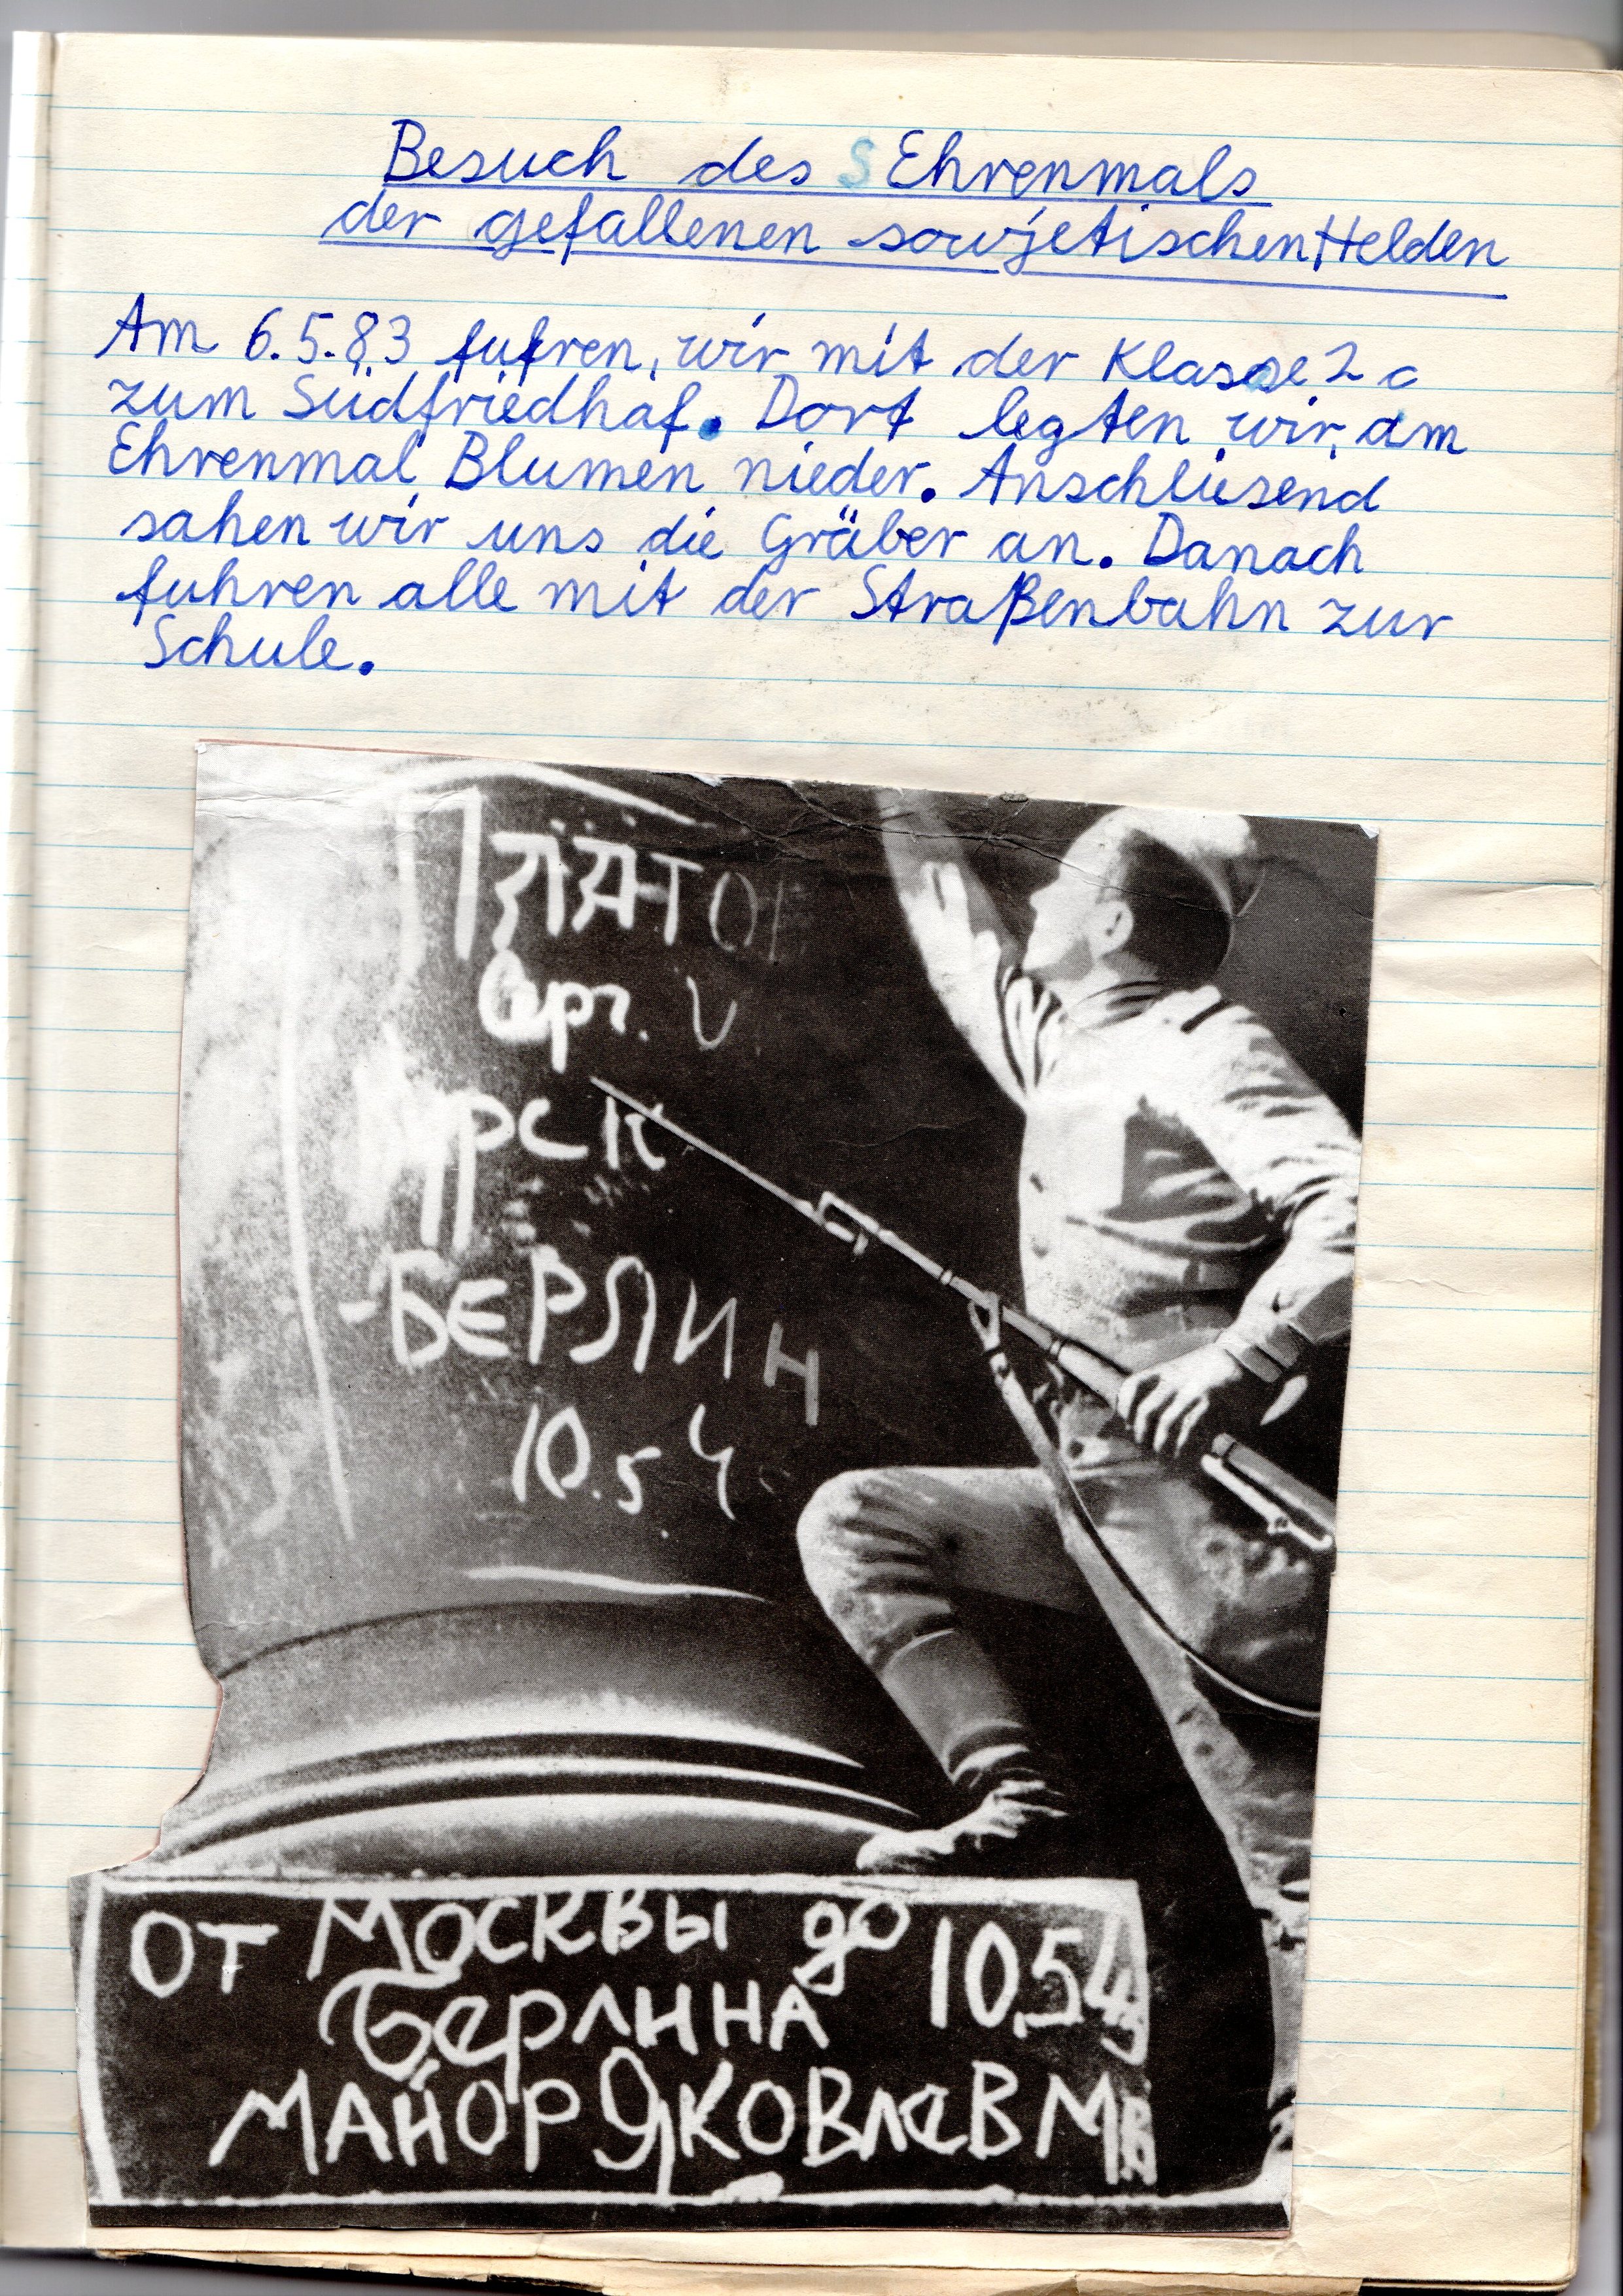 Besuch des S Ehrenmals
der gefallenen sowjetischen Helden
Am 6.5.83 fuhren wir mit der Klasse 2c
zum Südfriedhof. Dort legten wir am
Ehrenmal Blumen nieder. Anschliesend
sahen wir uns die Gräber an. Danach
fuhren alle mit der Straßenbahn zur
Schule.
-БЕРЛИН
10.5 4
от Москвы до 10.54
Берлина
майор Яковлев М